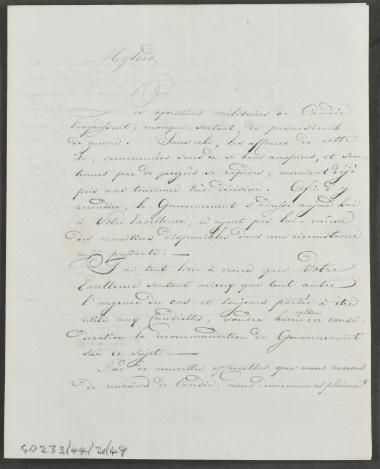 Mylord,
Les opérations militaires de Candie
languissent, manque surtout, de provisions
de guerre. Sans cela, les affaires de cette
île, commencées sous de si bons auspices, et sou-
tenues par de progrès si rapides, auraient déjà
pris une tournure très décisive. Afin d'y
remédier, le Gouvernement s'adresse aujourd'hui
à Votre Excellence, n'ayant pas lui-même
des munitions disponibles dans une circonstance
aussi pressante.
J'ai tout lieu à croire que Votre
Excellence sentant mieux que tout autre
l'urgence du cas, et toujours portée à être
utile aux Candiotes, voudra bien prendre en consi-
dération la recommandation du Gouvernement
sur ce sujet.
Par de nouvelles officielles que nous venons
de recevoir de Candie, nous sommes pleinement
40233/44/2/49